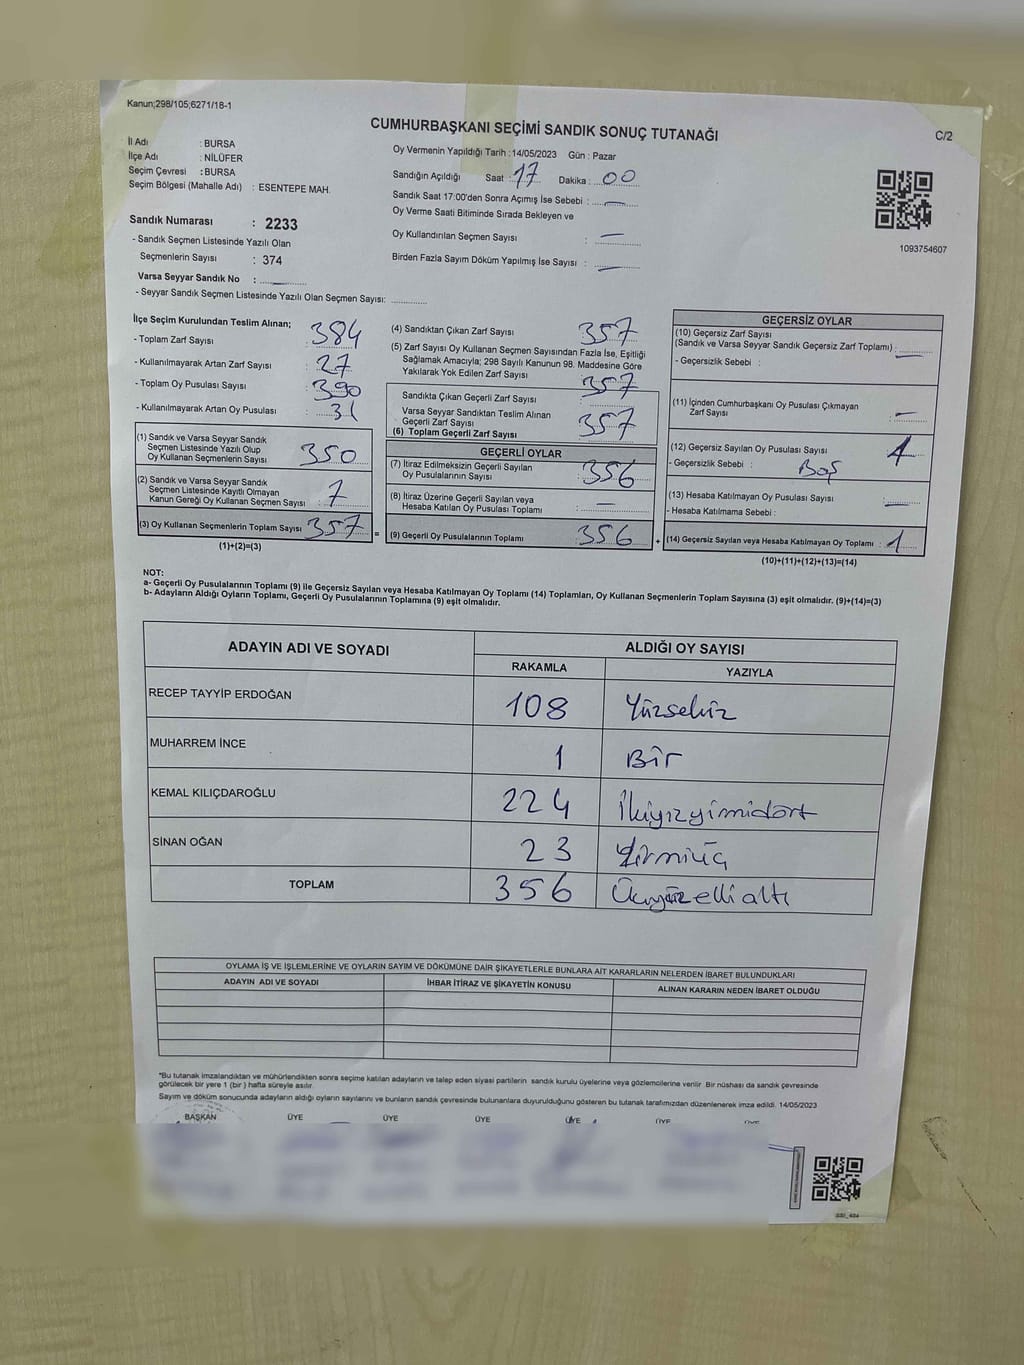 Kanun;298/105;6271/18-1
CUMHURBAŞKANI SEÇİMİ SANDIK SONUÇ TUTANAĞI
C/2
İl Adı : BURSA
İlçe Adı : NİLÜFER
Seçim Çevresi : BURSA
Seçim Bölgesi (Mahalle Adı) : ESENTEPE MAH.
Sandık Numarası : 2233
- Sandık Seçmen Listesinde Yazılı Olan
Seçmenlerin Sayısı : 374
Varsa Seyyar Sandık No :
- Seyyar Sandık Seçmen Listesinde Yazılı Olan Seçmen Sayısı:
Oy Vermenin Yapıldığı Tarih :14/05/2023 Gün : Pazar
Sandığın Açıldığı Saat : 17 Dakika : 00
Sandık Saat 17:00'den Sonra Açımış İse Sebebi : —
Oy Verme Saati Bitiminde Sırada Bekleyen ve
Oy Kullandırılan Seçmen Sayısı : —
Birden Fazla Sayım Döküm Yapılmış İse Sayısı : —
1093754607
İlçe Seçim Kurulundan Teslim Alınan;
- Toplam Zarf Sayısı : 384
- Kullanılmayarak Artan Zarf Sayısı : 27
- Toplam Oy Pusulası Sayısı : 390
- Kullanılmayarak Artan Oy Pusulası : 31
(1) Sandık ve Varsa Seyyar Sandık
Seçmen Listesinde Yazılı Olup
Oy Kullanan Seçmenlerin Sayısı : 350
(2) Sandık ve Varsa Seyyar Sandık
Seçmen Listesinde Kayıtlı Olmayan
Kanun Gereği Oy Kullanan Seçmen Sayısı : 7
(3) Oy Kullanan Seçmenlerin Toplam Sayısı : 357
(1)+(2)=(3)
(4) Sandıktan Çıkan Zarf Sayısı : 357
(5) Zarf Sayısı Oy Kullanan Seçmen Sayısından Fazla İse, Eşitliği
Sağlamak Amacıyla; 298 Sayılı Kanunun 98. Maddesine Göre
Yakılarak Yok Edilen Zarf Sayısı :
Sandıkta Çıkan Geçerli Zarf Sayısı : 357
Varsa Seyyar Sandıktan Teslim Alınan
Geçerli Zarf Sayısı :
(6) Toplam Geçerli Zarf Sayısı : 357
GEÇERLİ OYLAR
(7) İtiraz Edilmeksizin Geçerli Sayılan
Oy Pusulalarının Sayısı : 356
(8) İtiraz Üzerine Geçerli Sayılan veya
Hesaba Katılan Oy Pusulası Toplamı : —
= (9) Geçerli Oy Pusulalarının Toplamı : 356 +
GEÇERSİZ OYLAR
(10) Geçersiz Zarf Sayısı
(Sandık ve Varsa Seyyar Sandık Geçersiz Zarf Toplamı) : —
- Geçersizlik Sebebi :
(11) İçinden Cumhurbaşkanı Oy Pusulası Çıkmayan
Zarf Sayısı : —
(12) Geçersiz Sayılan Oy Pusulası Sayısı : 1
- Geçersizlik Sebebi : Boş
(13) Hesaba Katılmayan Oy Pusulası Sayısı : —
- Hesaba Katılmama Sebebi :
(14) Geçersiz Sayılan veya Hesaba Katılmayan Oy Toplamı : 1
(10)+(11)+(12)+(13)=(14)
NOT:
a- Geçerli Oy Pusulalarının Toplamı (9) ile Geçersiz Sayılan veya Hesaba Katılmayan Oy Toplamı (14) Toplamları, Oy Kullanan Seçmenlerin Toplam Sayısına (3) eşit olmalıdır. (9)+(14)=(3)
b- Adayların Aldığı Oyların Toplamı, Geçerli Oy Pusulalarının Toplamına (9) eşit olmalıdır.
ADAYIN ADI VE SOYADI ALDIĞI OY SAYISI
RAKAMLA YAZIYLA
RECEP TAYYİP ERDOĞAN 108 Yüzsekiz
MUHARREM İNCE 1 Bir
KEMAL KILIÇDAROĞLU 224 İkiyüzyimidört
SİNAN OĞAN 23 Yirmiüç
TOPLAM 356 Üçyüzellialtı
OYLAMA İŞ VE İŞLEMLERİNE VE OYLARIN SAYIM VE DÖKÜMÜNE DAİR ŞİKAYETLERLE BUNLARA AİT KARARLARIN NELERDEN İBARET BULUNDUKLARI
ADAYIN ADI VE SOYADI İHBAR İTİRAZ VE ŞİKAYETİN KONUSU ALINAN KARARIN NEDEN İBARET OLDUĞU
*Bu tutanak imzalandıktan ve mühürlendikten sonra seçime katılan adayların ve talep eden siyasi partilerin sandık kurulu üyelerine veya gözlemcilerine verilir. Bir nüshası da sandık çevresinde
görülecek bir yere 1 (bir ) hafta süreyle asılır.
Sayım ve döküm sonucunda adayların aldığı oyların sayılarını ve bunların sandık çevresinde bulunanlara duyurulduğunu gösteren bu tutanak tarafımızdan düzenlenerek imza edildi. 14/05/2023
BAŞKAN ÜYE ÜYE ÜYE ÜYE ÜYE ÜYE